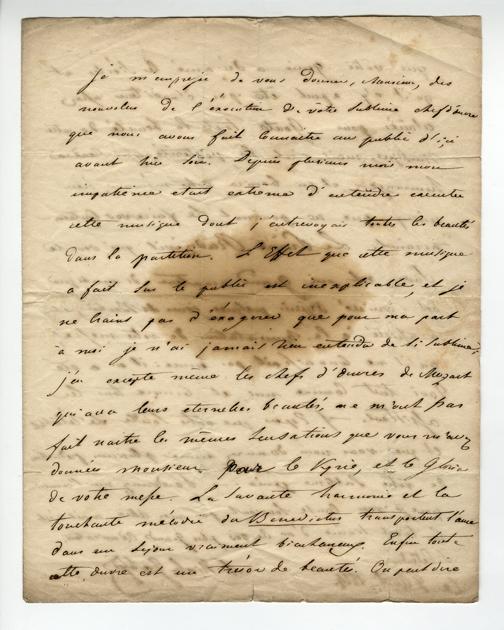 je m'empresse de vous donner, Monsieur, des
nouvelles de l'execution de votre sublime chef d'œuvre
que nous avons fait connaitre au public d'ici
avant hier soir. Depuis plusieurs mois mon
impatience etait extrême d'entendre executer
cette musique dont j'entrevoyais toutes les beautés
dans la partition. L'Effet que cette musique
a fait sur le public est inexplicable, et je
ne crains pas d'exagerer que pour ma part
à moi je n'ai jamais rien entendu de si sublime;
j'en excepte même les chefs d'œuvres de Mozart
qui avec leurs eternelles beautés, ne m'ont pas
fait naitre les mêmes sensations que vous m'avez
données Monsieur par le Kyrie, et le Gloria
de votre messe. La savante harmonie et la
touchante mélodie du Benedictus transportent l'ame
dans un sejour vraiment bienheureux. Enfin toute
cette œuvre est un tresor de beautés. On peut dire